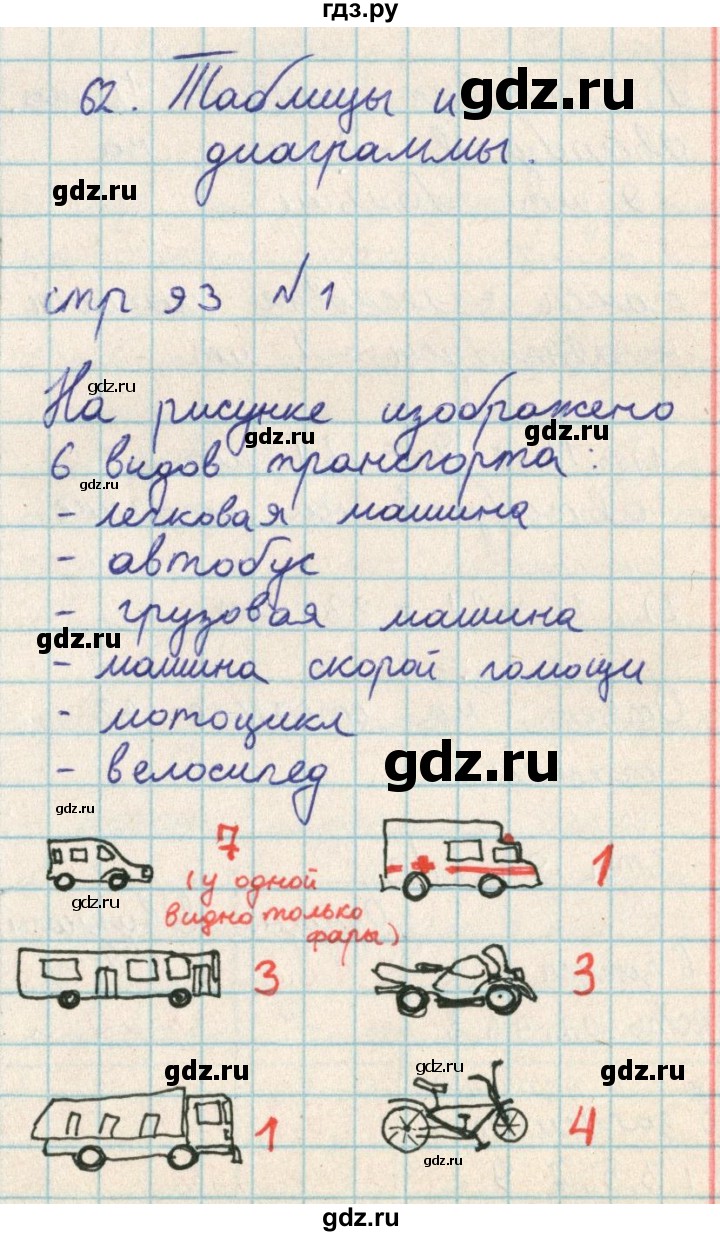 гдз.ру
62. Таблицы и gdz.ru
диаграммы.
gdz.ru
стр 93 №1
gdz.ru
На рисунке изображено
gdz.ru gdz.ru
6 видов транспорта:
gdz.ru
- легковая машина
- автобус
- грузовая машина
gdz.ru
- машина скорой помощи
- мотоцикл
- велосипед gdz.ru
gdz.ru
7 1
(у одной
gdz.ru
видно только
фары)
3 3
gdz.ru gdz.ru gdz.ru
1 4
gdz.ru
gdz.ru